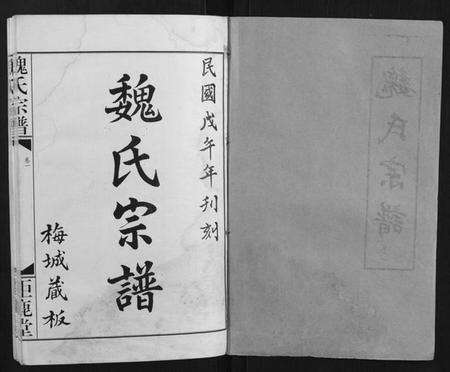 民國戊午年刋刻
魏氏宗譜
梅城蔵板
魏氏宗譜
卷一
巨鹿堂
魏氏宗譜